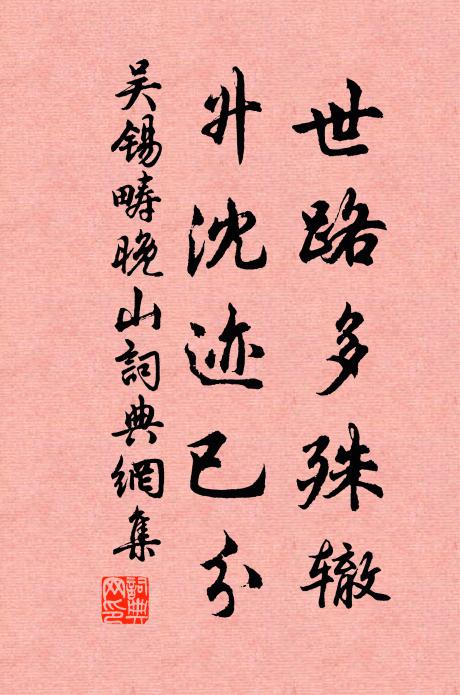 世路多殊辙
升沈迹已分
吴锡畴晚山詞典網集
詞典网印